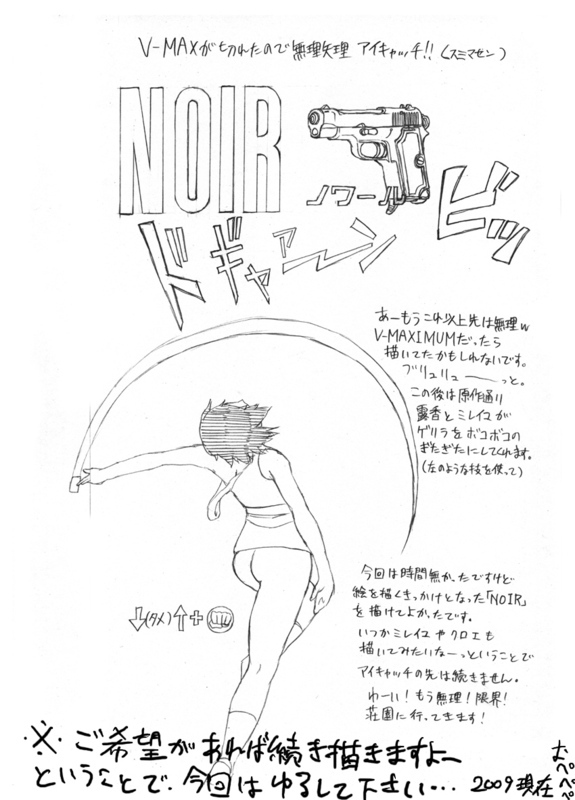 V-MAXが切れたので無理矢理 アイキャッチ!!(スミマセン)
NOIR
ノワール
ビッ
ドギャァーン
あーもうこれ以上先は無理w
V-MAXIMUMだったら
描いてたかもしれないです。
ブリュリューーっと。
この後は原作通り
霧香とミレイユが
ゲリラをボコボコの
ぎたぎたにしてくれます。
(左のような技を使って)
↓(タメ)↑+
今回は時間無かったですけど
絵を描くきっかけとなった「NOIR」
を描けてよかったです。
いつかミレイユやクロエも
描いてみたいなーっということで
アイキャッチの先は続きません。
わーい!もう無理!限界!
荘園に行ってきます!
※ご希望があれば続き描きますよー
ということで、今回はゆるして下さい… 2009現在